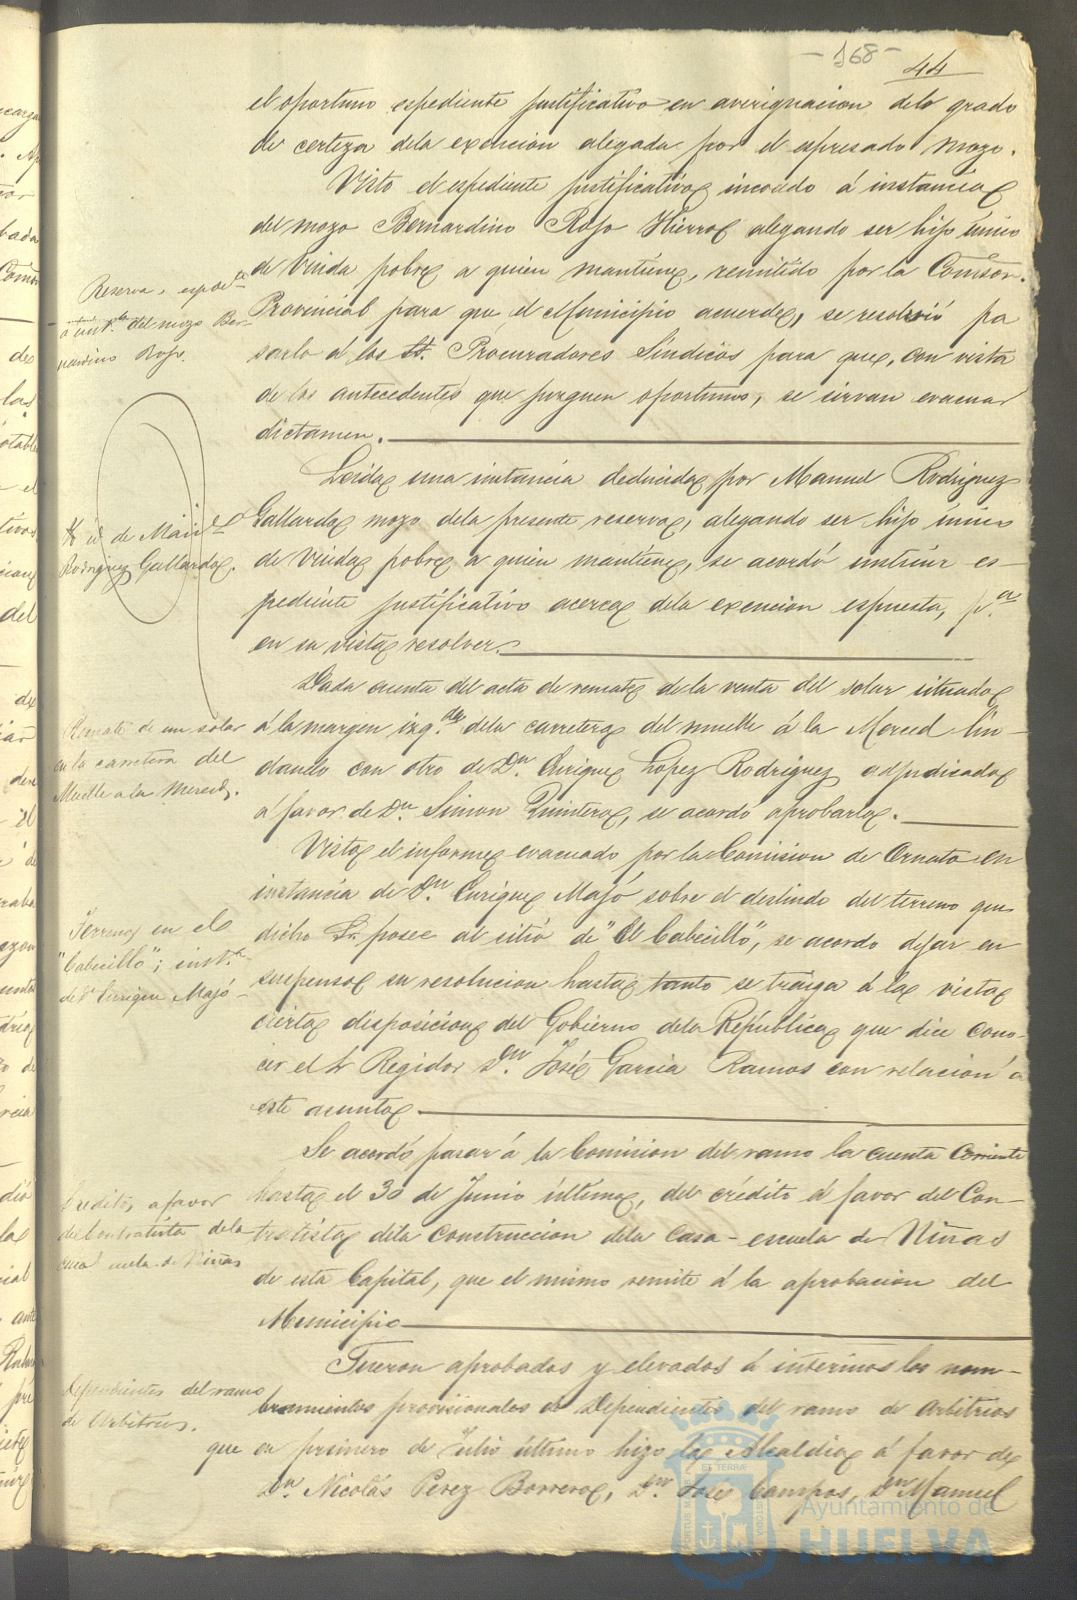 - 168 -
44
el oportuno espediente justificativo en averiguacion dela grado
de certeza dela exencion alegada por el espresado mozo.
Visto el espediente justificativo incoado á instancia
del mozo Bernardino Rojo Hierro alegando ser hijo único
de viuda pobre a quien mantiene, remitido por la Comison.
Provincial para que el Municipio acuerde, se resolvió pa
sarlo á los Procuradores Sindicos para que, con vista
de los antecedentes que juzguen oportunos, se sirvan evacuar
dictamen.
Leida una instancia deducida por Manuel Rodriguez
Gallardo mozo dela presente reserva, alegando ser hijo único
de viuda pobre a quien mantiene, se acordó instruir es-
pediente justificativo acerca dela exencion espuesta, p.ª
en su vista resolver.
Dada cuenta del acta de remate de la venta del solar situado
á la margen izq.da dela carretera del muelle á la Merced lin-
dando con otro de Dn. Enrique Lopez Rodriguez adjudicada
á favor de Dn. Simon Quintero, se acordó aprobarla.
Visto el informe evacuado por la Comision de Ornato en
instancia de Dn. Enrique Majó sobre el deslinde del terreno que
dicho Sr. posee al sitio de "El Cabecillo", se acordo dejar en
suspenso su resolucion hasta tanto se traiga á la vista
cierta disposicion del Gobierno dela República que dice cono-
cer el Sr Regidor Dn. José Garcia Ramos con relacion á
este asunto
Se acordó pasar á la Comision del ramo la cuenta corriente
hasta el 30 de Junio último, del crédito á favor del Con-
tratista dela construccion dela casa-escuela de Niñas
de esta Capital, que el mismo remite á la aprobacion del
Municipio
Fueron aprobados y elevados á interinos los nom-
bramientos provisionales de Dependientes del ramo de arbitrios
que en primero de Julio último hizo la Alcaldia á favor de
Dn. Nicolás Perez Borrero, Dn. José Campos, Dn Manuel
Reserva, esped.te
á inst.ª del mozo Ber-
nardino Rojo.
de Man.l
Rodriguez Gallardo.
Remate de un solar
en la carretera del
Muelle a la Merced.
Terreno en el
"Cabecillo"; inst.ª
de Dn Enrique Majó
Credito a favor
del contratista dela
casa escuela de Niñas
Dependientes del ramo
de Arbitrios.
Ayuntamiento de
HUELVA